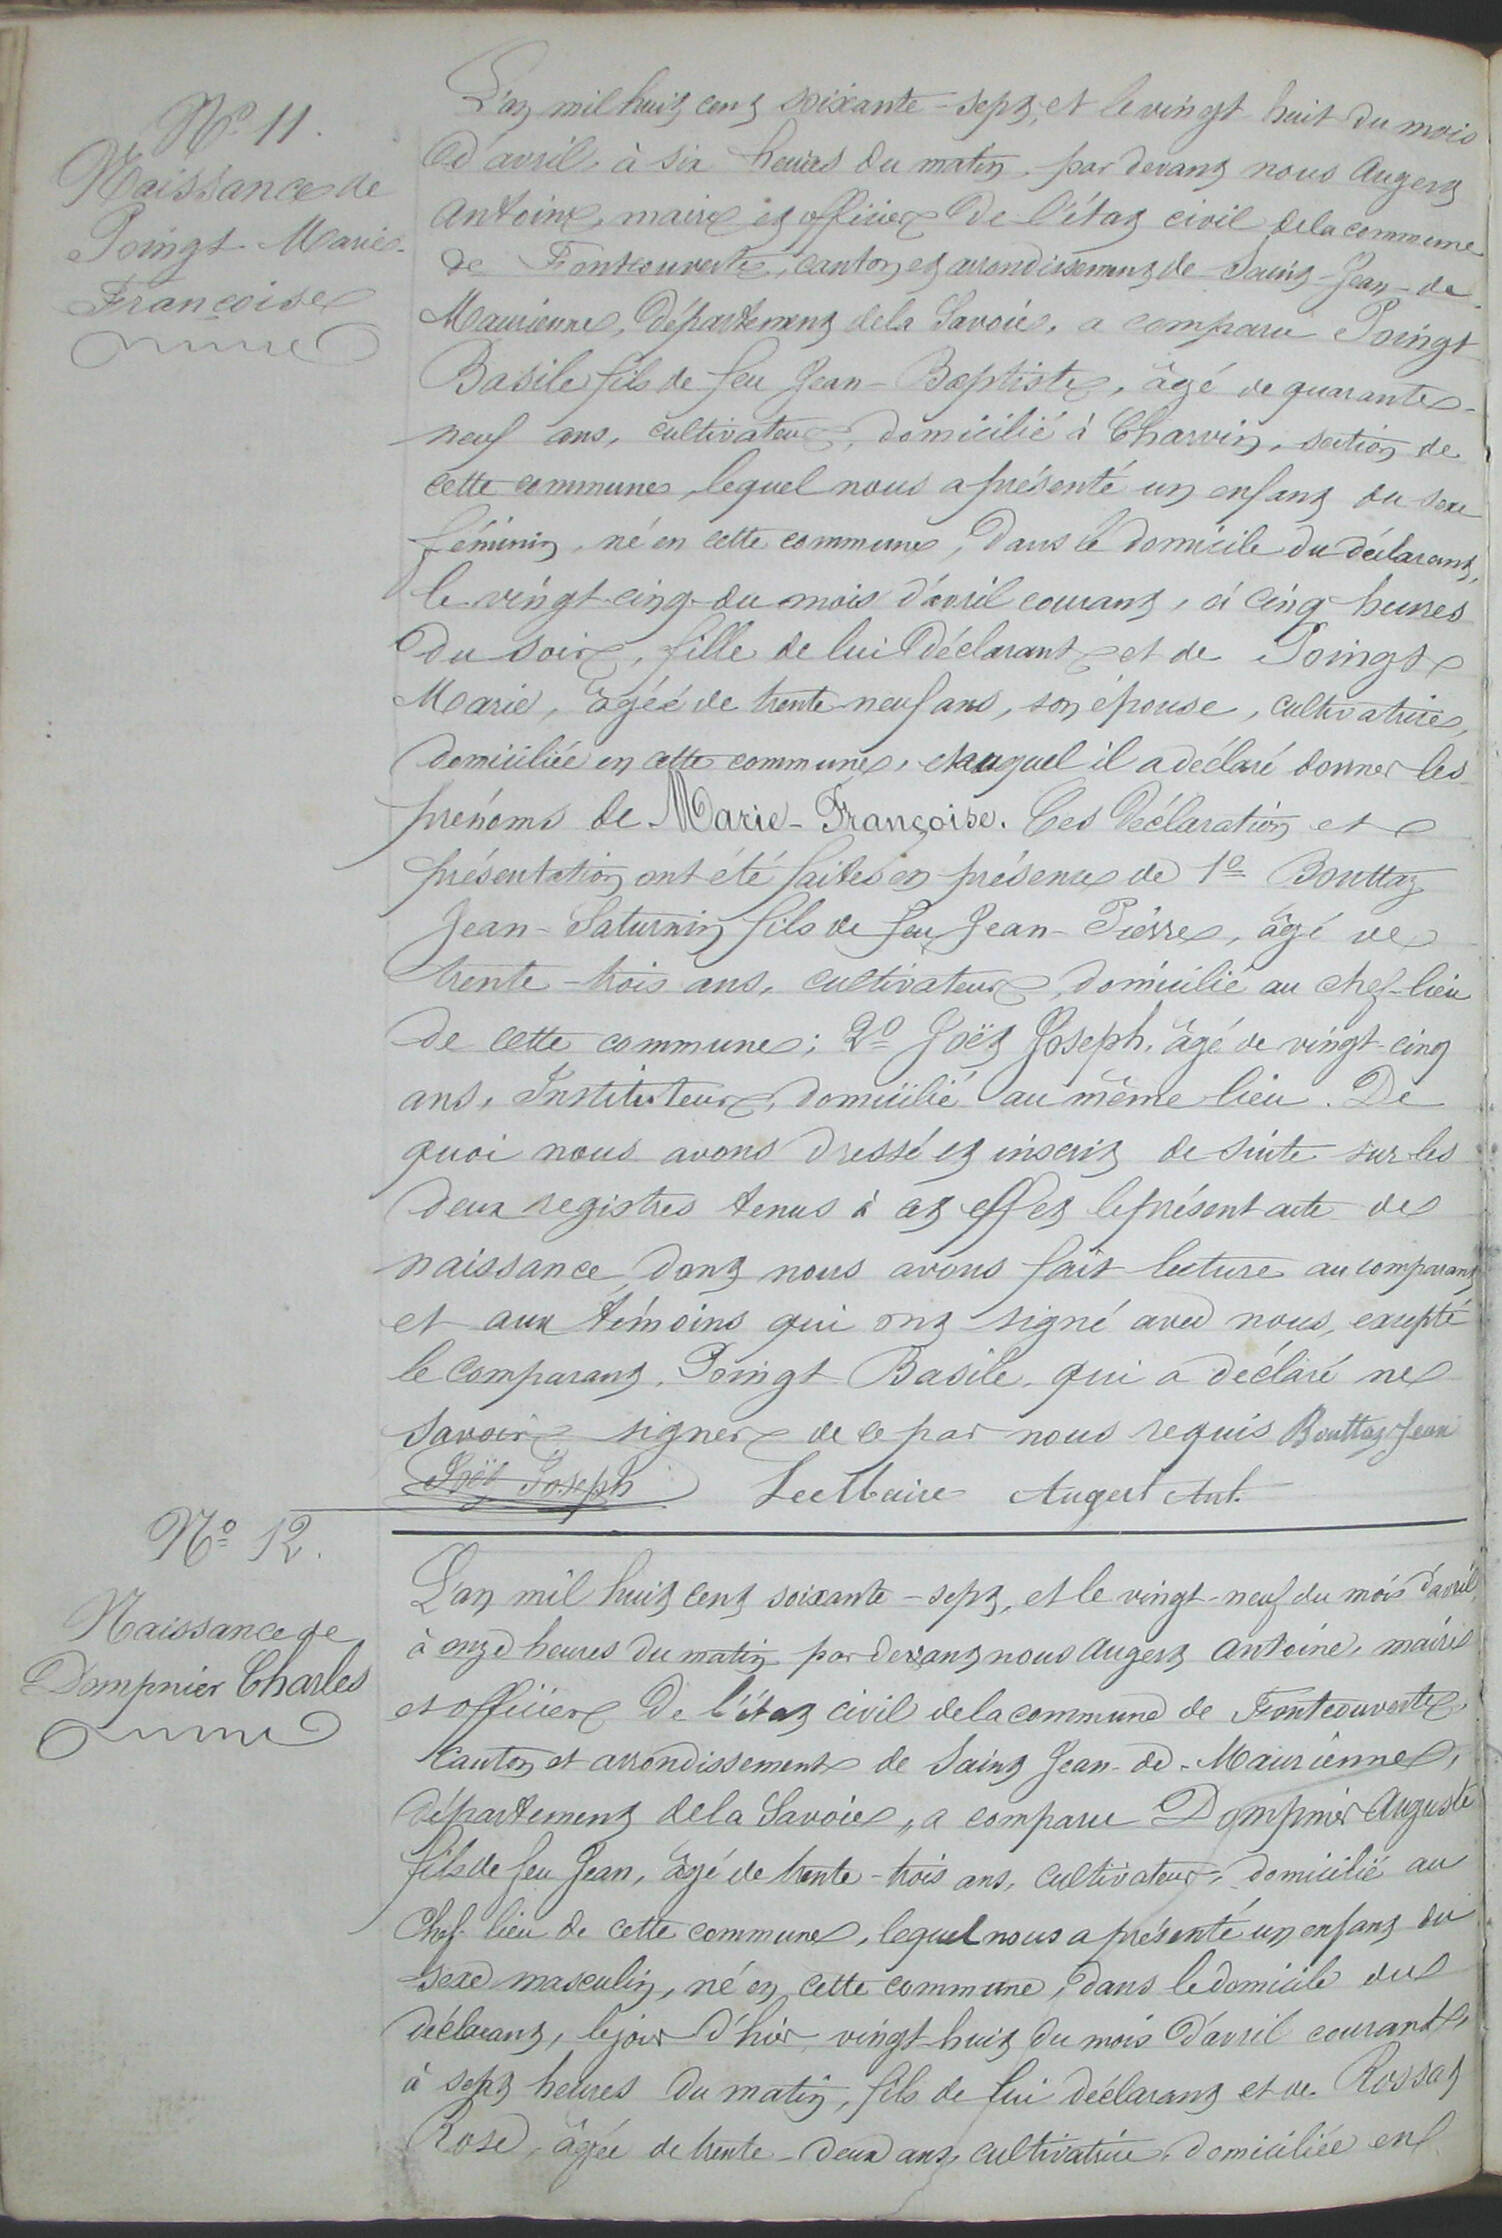 N° 11.
Naissance de
Poingt Marie-
Françoise
L'an mil huit cent soixante-sept, et le vingt huit du mois
d'avril, à six heures du matin, par devant nous Augert
Antoine, maire et officier de l'état civil de la commune
de Fontcouverte, canton et arrondissement de Saint-Jean-de-
Maurienne, département de la Savoie, a comparu Poingt
Basile fils de feu Jean-Baptiste, âgé de quarante-
neuf ans, cultivateur, domicilié à Charvin, section de
cette commune, lequel nous a présenté un enfant du sexe
féminin, né en cette commune, dans le domicile du déclarant,
le vingt-cinq du mois d'avril courant, à cinq heures
du soir, fille de lui déclarant et de Poingt
Marie, âgée de trente-neuf ans, son épouse, cultivatrice,
domiciliée en cette commune, et auquel il a déclaré donner les
prénoms de Marie-Françoise. Ces déclaration et
présentation ont été faites en présence de 1° Bouttaz
Jean-Saturnin fils de feu Jean-Pierre, âgé de
trente-trois ans, cultivateur, domicilié au chef-lieu
de cette commune; 2° Joët Joseph, âgé de vingt-cinq
ans, Instituteur, domicilié au même lieu. De
quoi nous avons dressé et inscrit de suite sur les
deux registres tenus à cet effet le présent acte de
naissance dont nous avons fait lecture au comparant
et aux témoins qui ont signé avec nous, excepté
le comparant, Poingt Basile, qui a déclaré ne
savoir signer de ce par nous requis Bouttaz Jean
Joët Joseph Le Maire Augert Ant.
N° 12.
Naissance de
Dompnier Charles
L'an mil huit cent soixante-sept, et le vingt-neuf du mois d'avril,
à onze heures du matin par devant nous Augert Antoine, maire
et officier de l'état civil de la commune de Fontcouverte,
canton et arrondissement de Saint Jean-de-Maurienne,
département de la Savoie, a comparu Dompnier Auguste
fils de feu Jean, âgé de trente-trois ans, cultivateur, domicilié au
Chef-lieu de cette commune, lequel nous a présenté un enfant du
sexe masculin, né en cette commune, dans le domicile du
déclarant, le jour d'hier vingt-huit du mois d'avril courant,
à sept heures du matin, fils de lui déclarant et de Rossat
Rose, âgée de trente-deux ans, cultivatrice, domiciliée en